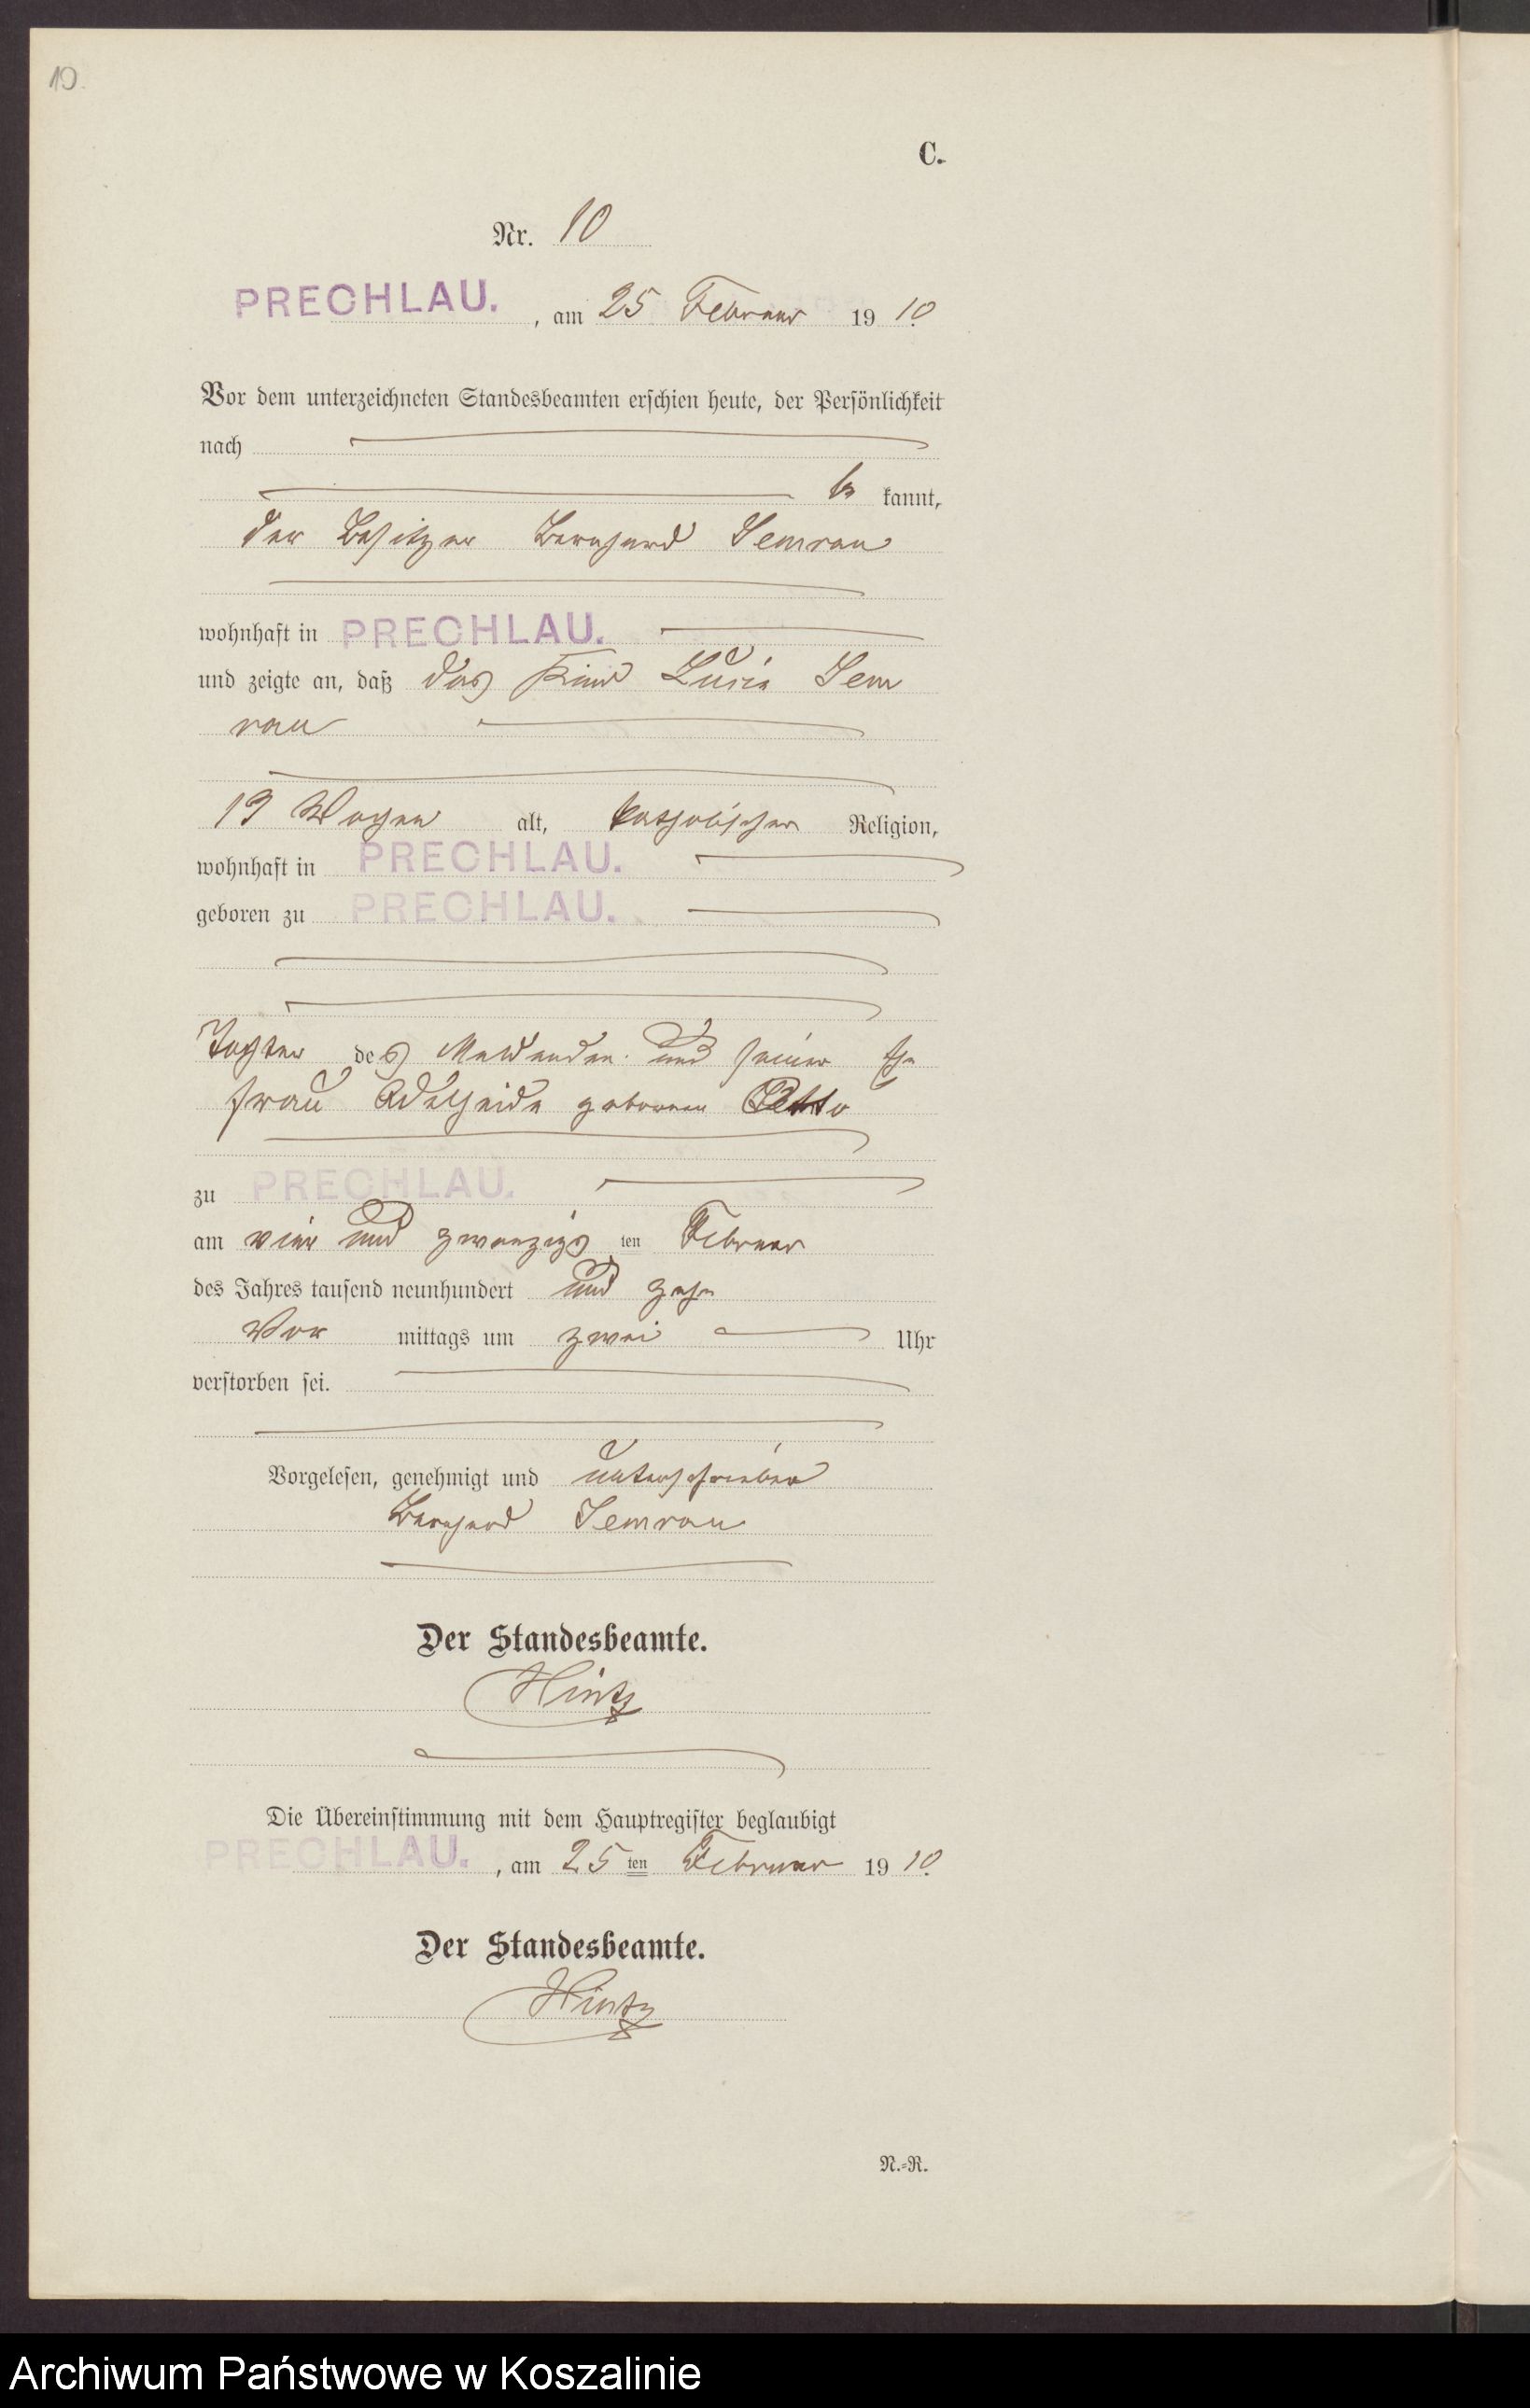 10.
C.
Nr. 10
PRECHLAU. , am 25 Februar 19 10.
Vor dem unterzeichneten Standesbeamten erschien heute, der Persönlichkeit
nach
be kannt,
der Besitzer Bernhard Semrau
wohnhaft in PRECHLAU.
und zeigte an, daß das Kind Lucia Sem
rau
19 Wochen alt, katholischer Religion,
wohnhaft in PRECHLAU.
geboren zu PRECHLAU.
Tochter des Meldenden und seiner Ehe
frau Adelheide geborenen
zu PRECHLAU.
am vier und zwanzigs ten Februar
des Jahres tausend neunhundert und zehn
Vor mittags um zwei Uhr
verstorben sei.
Vorgelesen, genehmigt und unterschrieben
Bernhard Semrau
Der Standesbeamte.
Hintz
Die Übereinstimmung mit dem Hauptregister beglaubigt
PRECHLAU. , am 25 ten Februar 19 10.
Der Standesbeamte.
Hintz
N.-R.
Archiwum Państwowe w Koszalinie